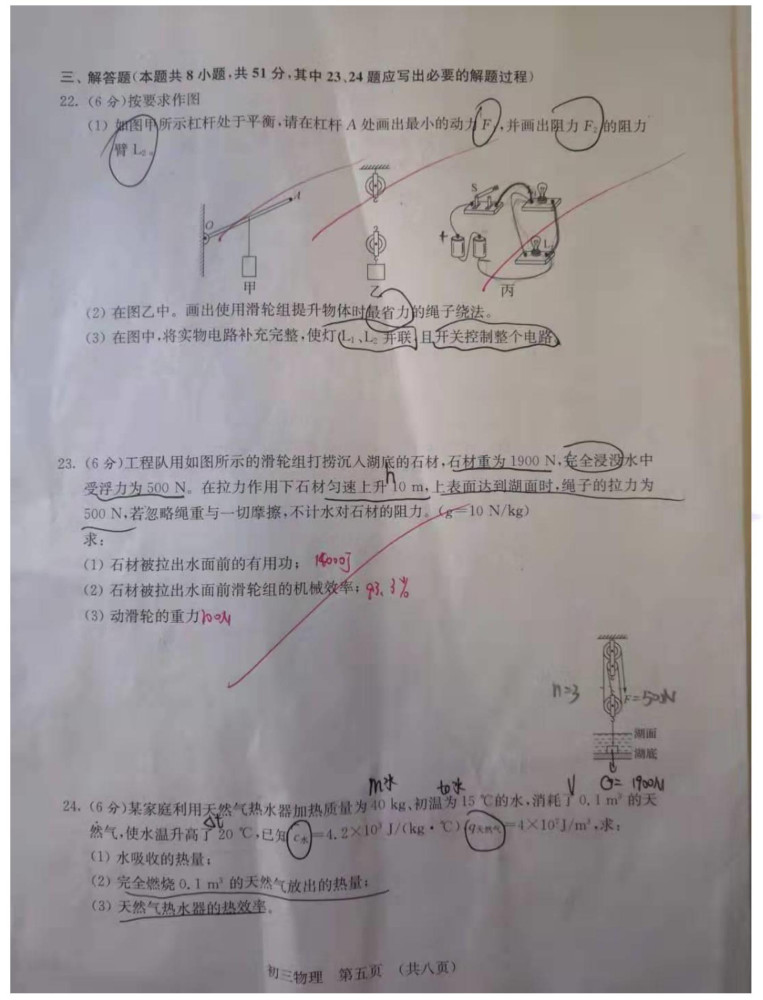 三、解答题(本题共 8 小题,共 51 分,其中 23、24 题应写出必要的解题过程)
22. (6 分)按要求作图
(1) 如图甲所示杠杆处于平衡,请在杠杆 A 处画出最小的动力 F₁,并画出阻力 F₂ 的阻力
臂 L₂。
O
A
S
L₂
+
甲
乙
丙
(2) 在图乙中。画出使用滑轮组提升物体时最省力的绳子绕法。
(3) 在图中,将实物电路补充完整,使灯 L₁、L₂ 并联,且开关控制整个电路。
23. (6 分)工程队用如图所示的滑轮组打捞沉入湖底的石材,石材重为 1900 N,完全浸没水中
h
受浮力为 500 N。在拉力作用下石材匀速上升 10 m,上表面达到湖面时,绳子的拉力为
500 N,若忽略绳重与一切摩擦,不计水对石材的阻力。(g=10 N/kg)
求:
(1) 石材被拉出水面前的有用功; 14000J
(2) 石材被拉出水面前滑轮组的机械效率; 93.3%
(3) 动滑轮的重力 100N
n=3
F=500N
湖面
湖底
G=1900N
m水 t0水 V
24. (6 分)某家庭利用天然气热水器加热质量为 40 kg、初温为 15 ℃的水,消耗了 0.1 m³ 的天
Δt
然气,使水温升高了 20 ℃,已知 c水=4.2×10³ J/(kg·℃) q天然气=4×10⁷J/m³,求:
(1) 水吸收的热量;
(2) 完全燃烧 0.1 m³ 的天然气放出的热量;
(3) 天然气热水器的热效率。
初三物理 第五页 (共八页)